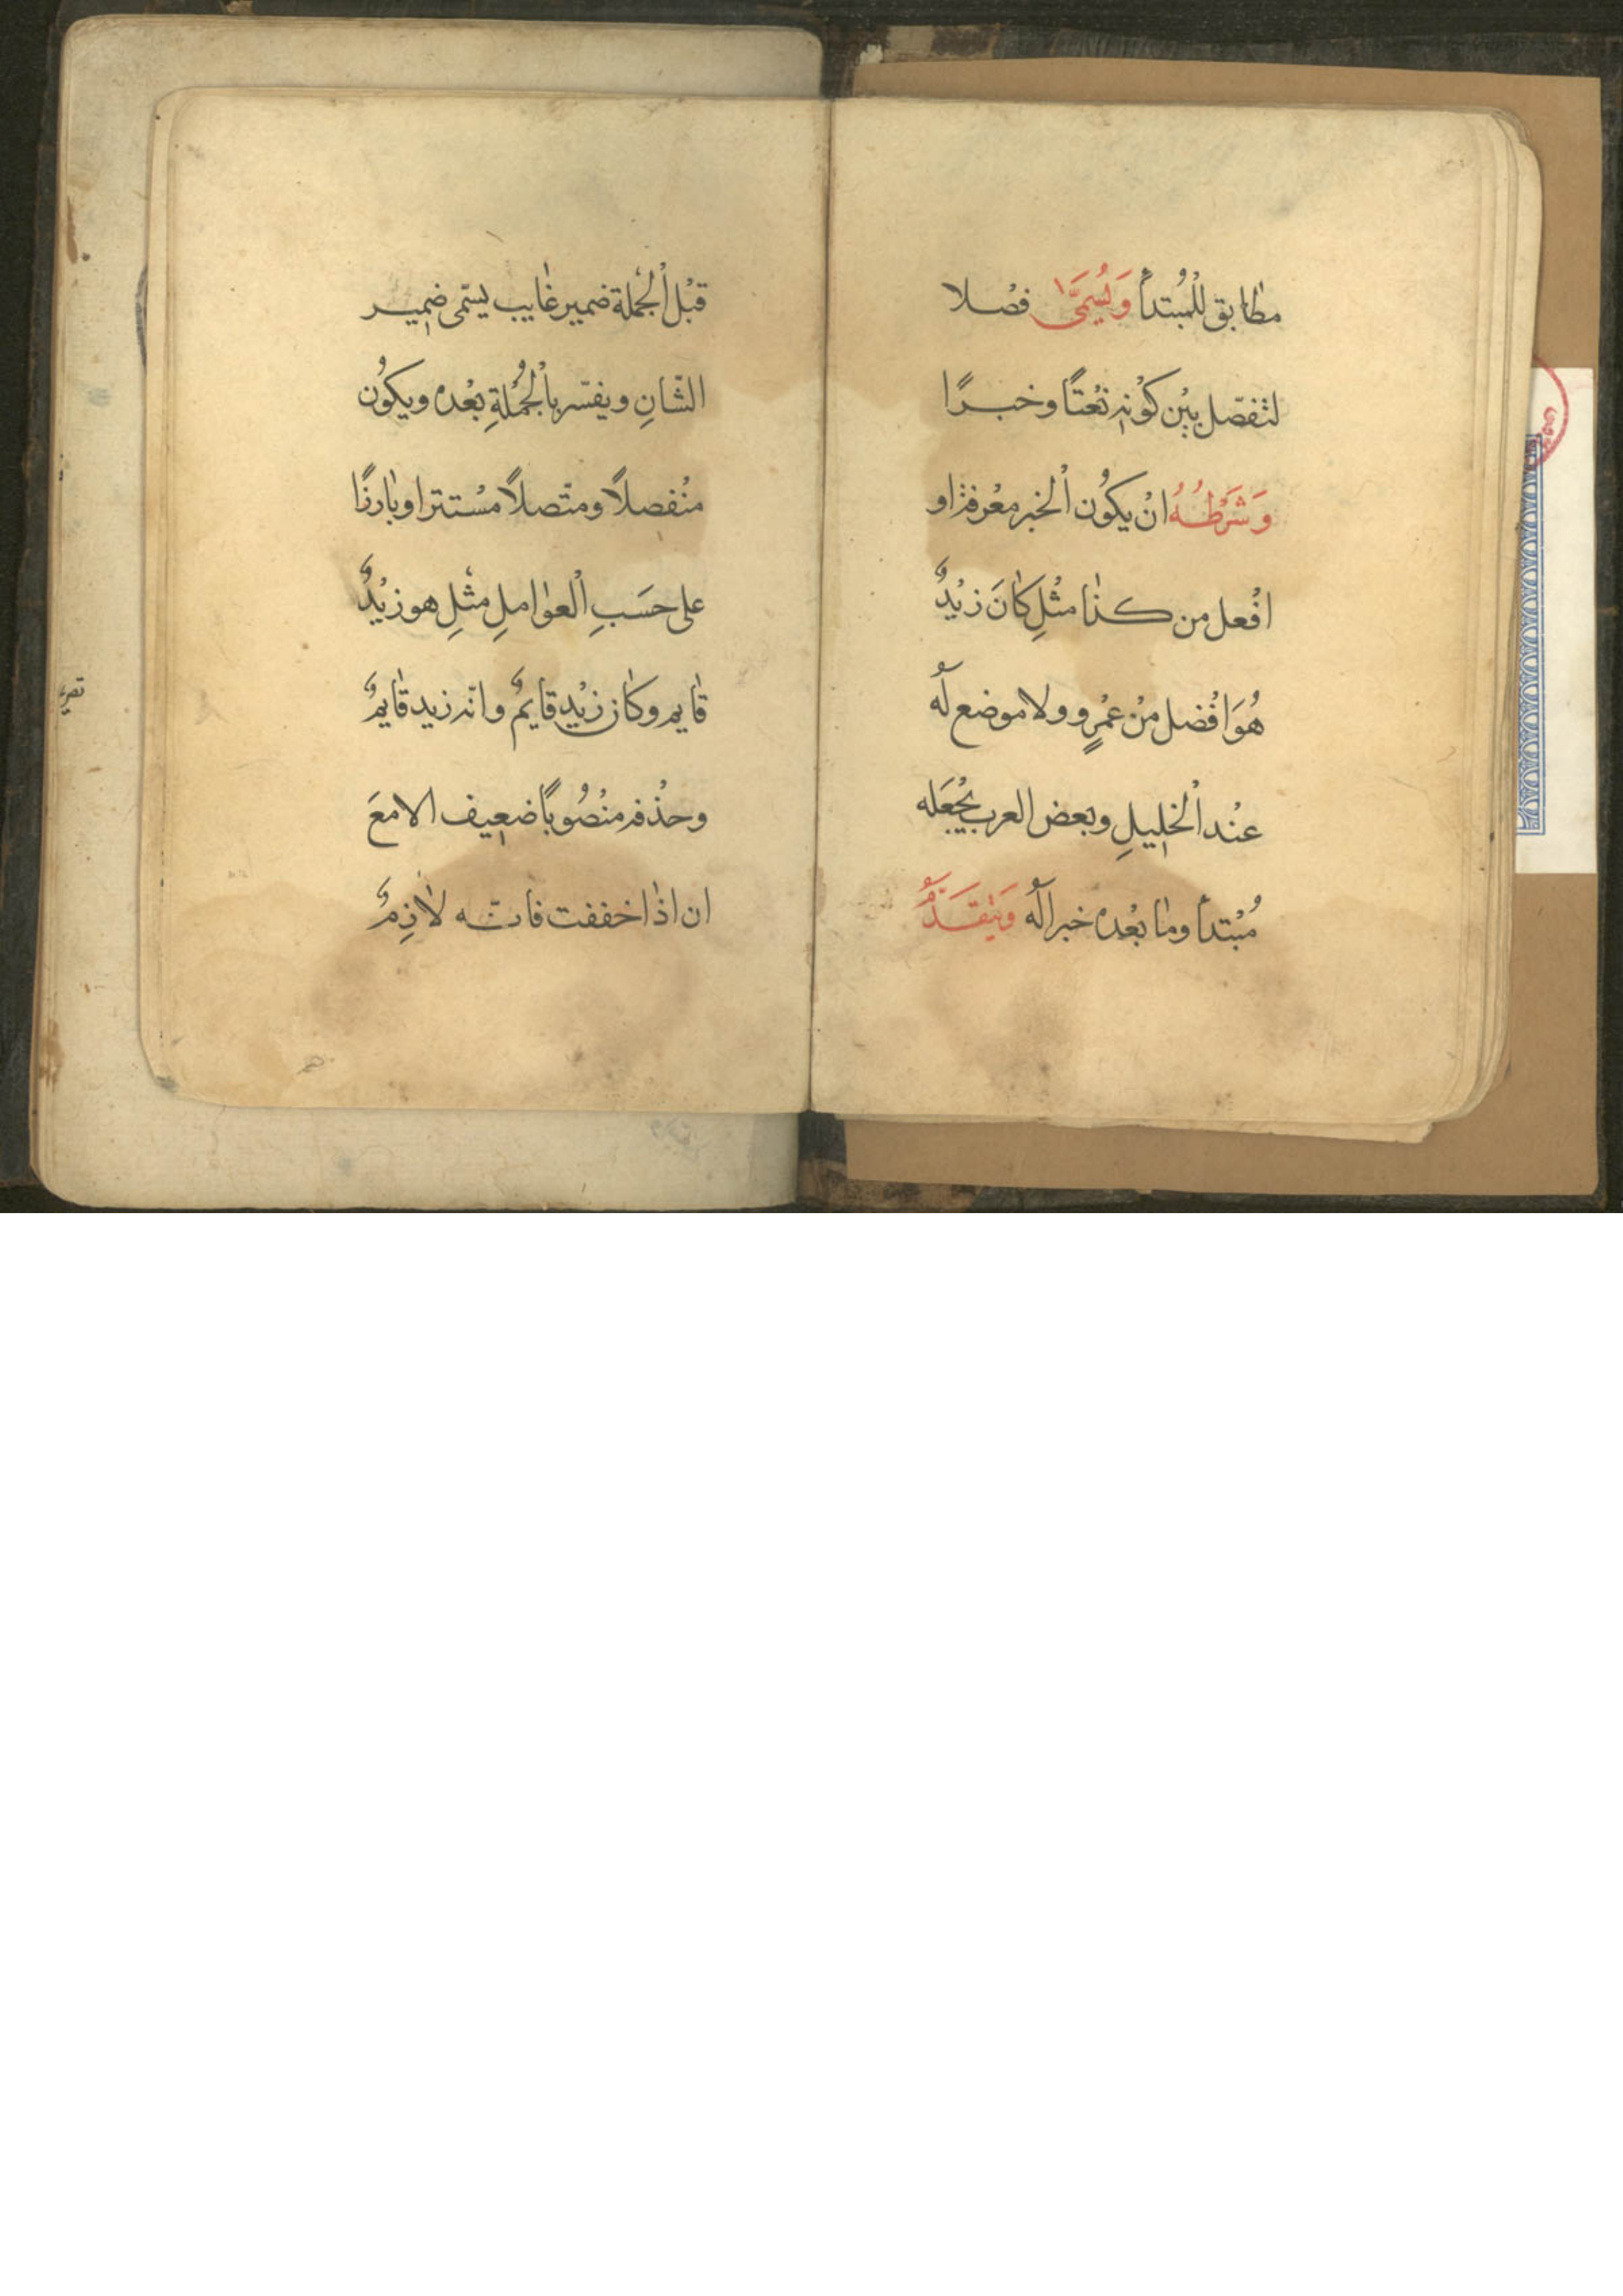 مطابق للْمُبتدأ وَيُسَمَّى فصْلا
لتفصّل بيْن كوْنِه نعْتًا وخبرًا
وَشَرْطُهُ انْ يكوُن اْلخبر معْرفة او
افْعل من كذا مثْلِ كانَ زيْدٌ
هُوَ افْضل منْ عمْرٍو ولا موضع لهُ
عنْد اْلخلِيلِ وبعض العرب يجْعَله
مُبْتدأ وما بعْده خبرا لهُ وَيتقَدَّمُ
قبْل اْلجُملة ضمير غايب يسمّى ضمِير
الشّانِ ويفسّر باْلجُمْلةِ بعْده ويكوُن
منْفصلاً ومتّصلاً مسْتترا وبارزًا
على حسَبِ اْلعوامِلِ مثْلِ هو زيْدٌ
قايم وكان زيْد قايمٌ وانّه زيد قايمٌ
وحذْفه منْصُوبًا ضعِيف الا معَ
ان اذا خففت فانه لازِمٌ